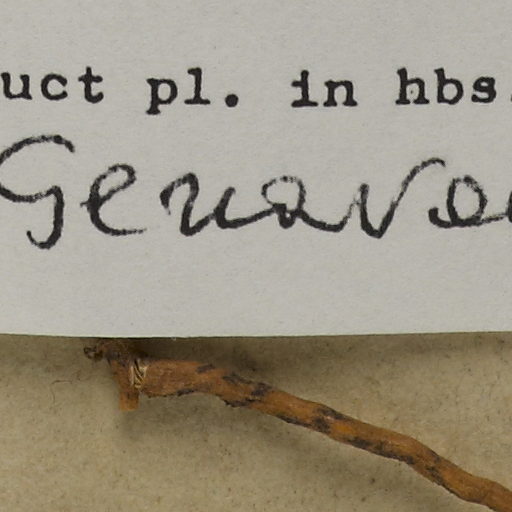 uct pl. in hbs.
Genavae